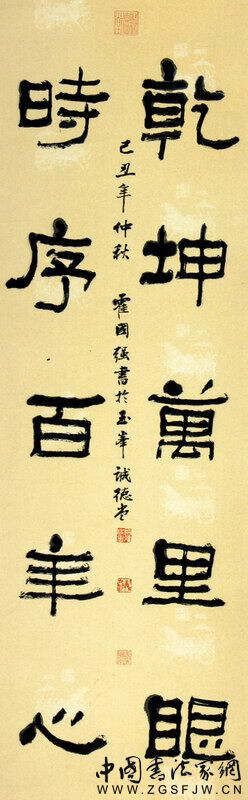 乾坤萬里眼
時序百年心
己丑年仲秋 霍國强書於玉峯誠德堂
中国书法家網
WWW.ZGSFJW.CN